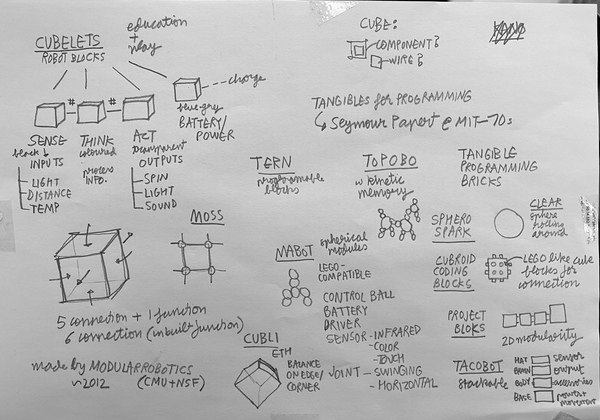 CUBELETS
ROBOT BLOCKS
education
+
play
charge
blue-gray
BATTERY/
POWER
#
#
SENSE
black
INPUTS
LIGHT
DISTANCE
TEMP
THINK
coloured
process
INFO.
ACT
transparent
OUTPUTS
SPIN
LIGHT
SOUND
5 connection + 1 function
6 connection (inbuilt function)
made by MODULAR ROBOTICS
~2012 (CMU+NSF)
MOSS
CUBE:
COMPONENT?
WIRE?
TANGIBLES for PROGRAMMING
Seymour Papert @ MIT-70s
TERN
programmable
blocks
TOPOBO
w kinetic
memory
TANGIBLE
PROGRAMMING
BRICKS
MABOT
spherical
modules
LEGO-
COMPATIBLE
CONTROL BALL
BATTERY
DRIVER
SENSOR - INFRARED
- COLOR
- TOUCH
JOINT - SWINGING
- HORIZONTAL
CUBLI
ETH
BALANCE
ON EDGE/
CORNER
SPHERO
SPARK
CLEAR
sphere
rolling
around
CUBROID
CODING
BLOCKS
LEGO like cube
blocks for
connection
PROJECT
BLOKS
2D modularity
TACOBOT
stackable
HAT sensor
BRAIN output
BODY accessories
BASE power+
movement